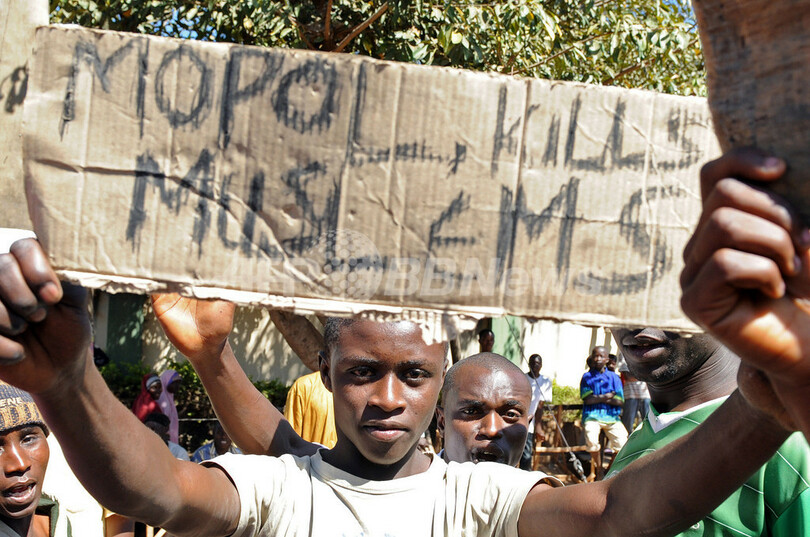 MOPOL, KILLS
MUSLEMS
BBNews